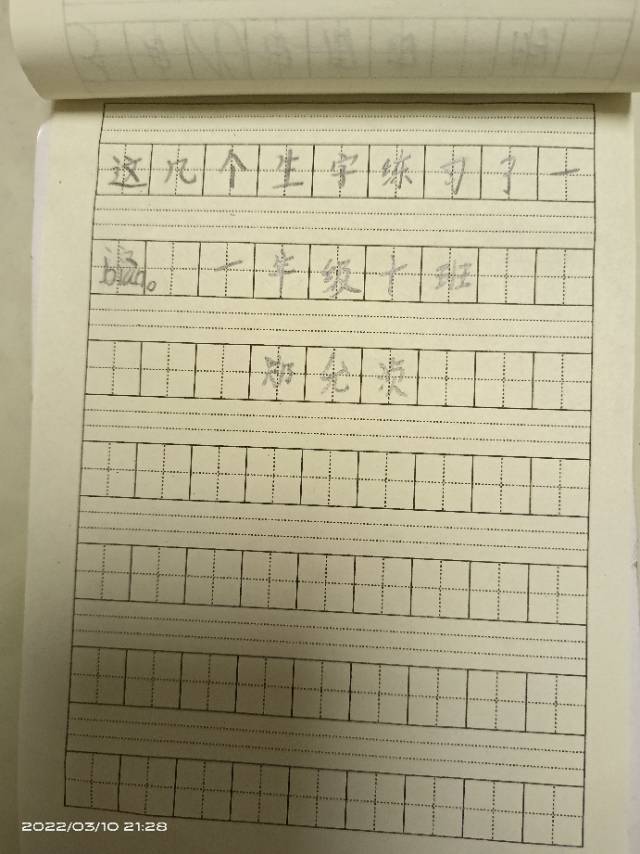 这几个生字练习了一
biàn。 一年级十班
郑允
2022/03/10 21:28